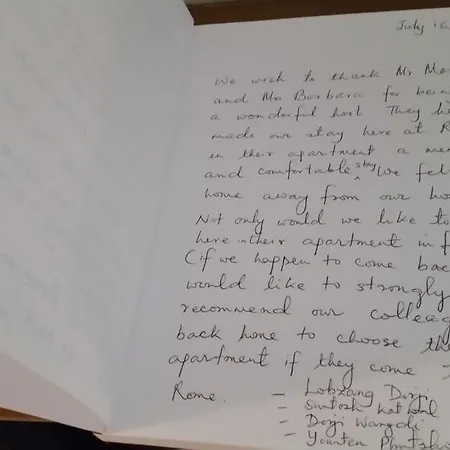 July 16
We wish to thank Mr Ma
and Mrs Barbara for bein
a wonderful host They h
made our stay here at R
in their apartment a me
and comfortable stay We fel
home away from our ho
Not only would we like to
here in their apartment in f
(if we happen to come bac
would like to strongly
recommend our colleag
back home to choose the
apartment if they come
Rome.
- Lobzang Dorji
- Santosh
- Dorji Wangdi
- Yeshten